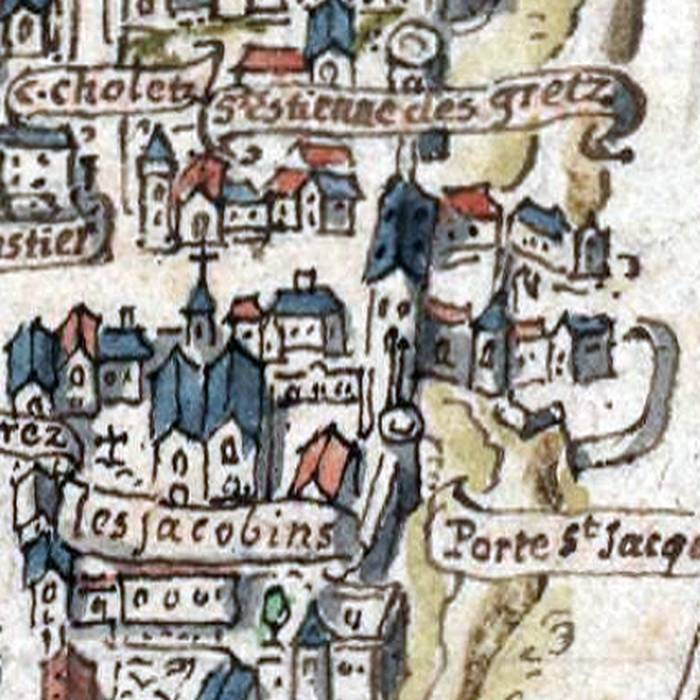 c. choletz
St Estienne des gretz
stier
rez
les Jacobins
Porte St Jacq